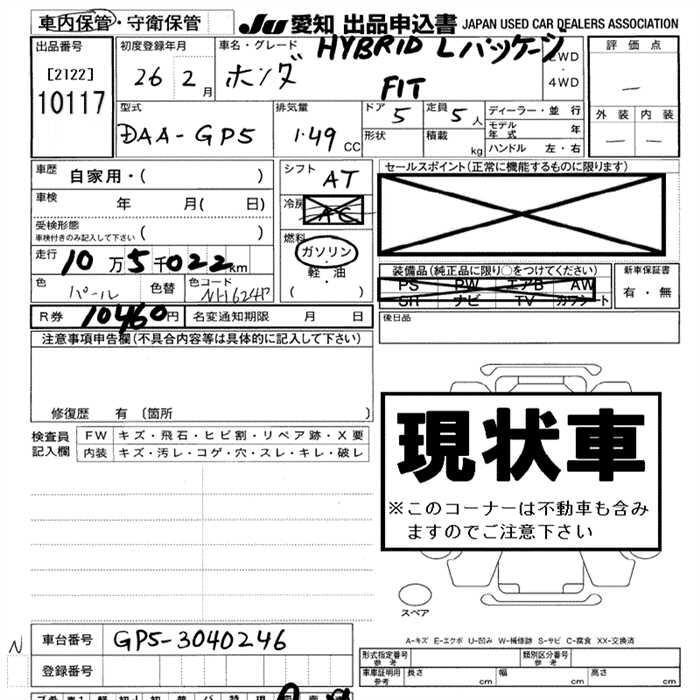 車内保管・守衛保管
JU 愛知 出品申込書 JAPAN USED CAR DEALERS ASSOCIATION
出品番号
[2122]
10117
初度登録年月
26 2月
車名・グレード
HYBRID Lパッケージ
ホンダ FIT
2WD
・
4WD
評価点
—
外装 内装
— —
型式
DAA-GP5
排気量
1.49 CC
ドア 5
形状
定員 5人
積載 kg
ディーラー・並行
モデル年式 年
ハンドル 左・右
車歴 自家用・( )
車検 年 月( 日)
受検形態
車検付きのみ記入して下さい ( )
走行 10万5千022km
色 パール 色替 色コード NH624P
シフト AT
冷房 AC
燃料
ガソリン・
軽・油
( )
セールスポイント(正常に機能するものに限ります)
装備品(純正品に限り〇をつけてください)
PS PW エアB AW
SR ナビ TV カワシート
新車保証書
有・無
R券 10460円 名変通知期限 月 日
後日品
注意事項申告欄(不具合内容等は具体的に記入して下さい)
修復歴 有 〔箇所 〕
検査員記入欄
FW キズ・飛石・ヒビ割・リペア跡・X要
内装 キズ・汚レ・コゲ・穴・スレ・キレ・破レ
現状車
※このコーナーは不動車も含み
ますのでご注意下さい
スペア
A-キズ E-エクボ U-凹み W-補修跡 S-サビ C-腐食 XX-交換済
N
車台番号 GP5-3040246
登録番号
形式指定番号 参考
類別区分番号 参考
車庫証明用 参考 長さ cm 幅 cm 高さ cm